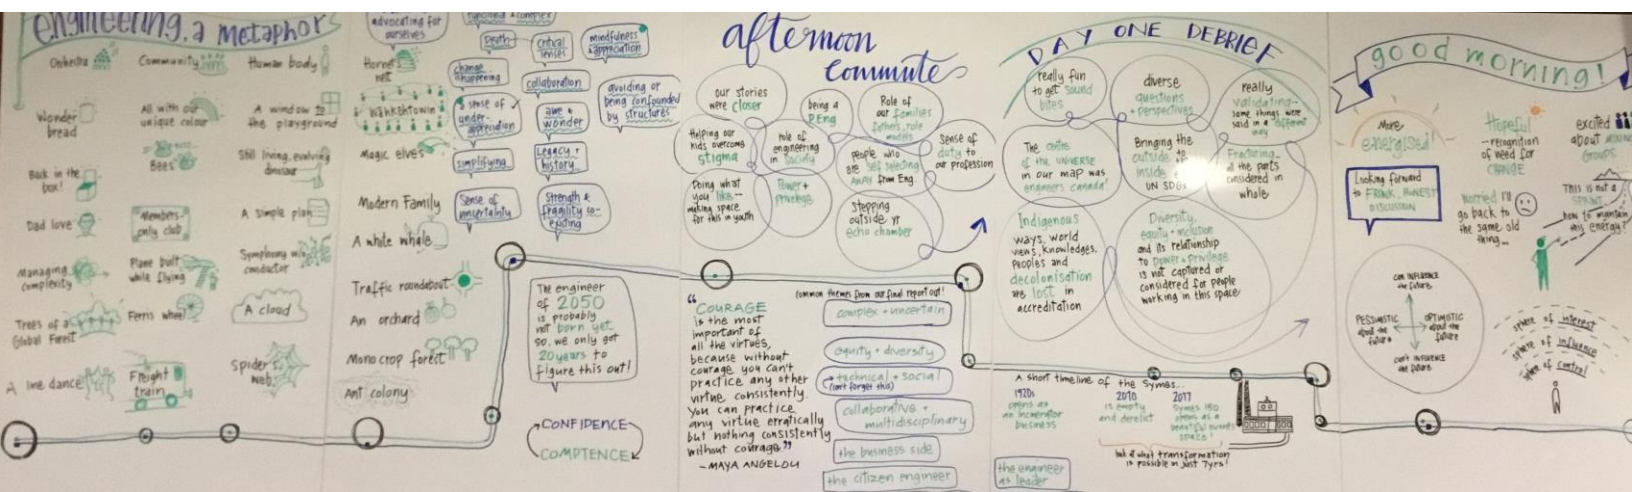 engineering, a metaphor
Orchestra
Community
Human body
Wonder
bread
All with our
unique colour
A window to
the playground
Back in the
box!
Bees
Still living, evolving
dinosaur
Dad love
Members-
only club
A simple plan
Managing
complexity
Plane built
while flying
Symphony w/o
conductor
Trees of a
Global Forest
Ferris wheel
A cloud
A line dance
Freight
train
Spider's
web
advocating for
ourselves
Hornet
net
Magic elves
Modern Family
A white whale
Traffic roundabout
An orchard
Mono crop forest
Ant colony
Death
critical
lenses
mindfulness
+ appreciation
change
happening
collaboration
avoiding or
being confounded
by structures
sense of
under-
appreciation
awe +
wonder
simplifying
Legacy +
history
Sense of
uncertainty
Strength &
fragility co-
existing
The engineer
of 2050
is probably
not born yet
so, we only got
20 years to
figure this out!
CONFIDENCE
COMPTENCE
afternoon
commute
our stories
were closer
being a
P.Eng
Role of
our families
fathers, role
models
Helping our
kids overcome
stigma
role of
engineering
in society
people who
are self selecting
AWAY from Eng.
Sense of
duty to
our profession
Doing what
you like —
making space
for this in youth
Power +
privilege
Stepping
outside yr
echo chamber
"COURAGE
is the most
important of
all the virtues,
because without
courage you can't
practice any other
virtue consistently.
You can practice
any virtue erratically
but nothing consistently
without courage."
—MAYA ANGELOU
common themes from our final report out!
complex + uncertain
equity + diversity
technical + social
(can't forget this)
collaborative +
multidisciplinary
the business side
the citizen engineer
DAY ONE DEBRIEF
really fun
to get sound
bites
diverse
questions
+ perspectives
really
validating--
some things were
said in a different
way
The centre
of the UNIVERSE
in our map was
engineers canada!
Bringing the
outside
inside
UN SDGs
Fracturing--
all the parts
considered in
whole
Indigenous
ways, world
views, knowledges,
Peoples and
decolonisation
are lost in
accreditation
Diversity,
equity + inclusion
and its relationship
to power + privilege
is not captured or
considered for people
working in this space
A short timeline of the Symes...
1920s
opens as
an incinerator
business
2010
is empty
and derelict
2017
Symes 150
opens as a
beautiful events
space!
look at what transformation
is possible in just 7yrs!
the engineer
as leader
good morning!
More
energised!
Hopeful
—recognition
of need for
CHANGE
excited
about
GROUPS
Looking forward
to FRANK, HONEST
DISCUSSION
worried I'll
go back to
the same old
thing...
This is not a
SPRINT
how to maintain
this energy?
CAN INFLUENCE
the future
PESSIMISTIC
about the
future
OPTIMISTIC
about the
future
can't INFLUENCE
the future
sphere of interest
sphere of influence
sphere of control